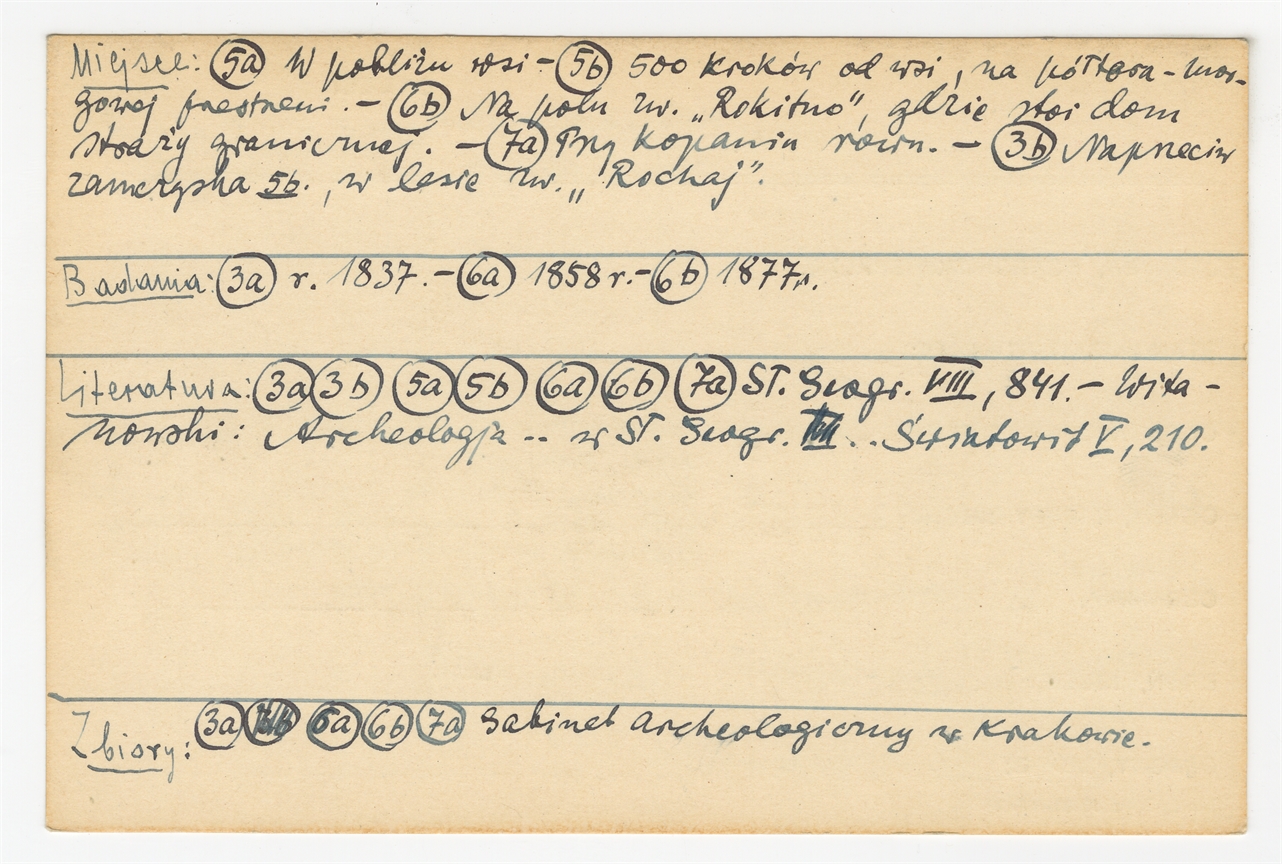 Miejsce: 5a W pobliżu wsi - 5b 500 kroków od wsi, na półtora-mor-
gowej przestrzeni. - 6b Na polu zw. „Rokitno”, gdzie stoi dom
straży granicznej. - 7a Przy kopaniu rowu. - 3b Naprzeciw
zameczyska 5b., w lesie zw. „Rochaj”.
Badania: 3a r. 1837. - 6a 1858 r. - 6b 1877 r.
Literatura: 3a 3b 5a 5b 6a 6b 7a Sł. Geogr. VIII, 841. - Wita-
nowski: Archeologja .. w Sł. Geogr. .. Światowit V, 210.
Zbiory: 3a 6a 6b 7a Gabinet Archeologiczny w Krakowie.